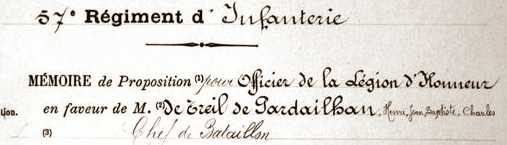 57e Régiment d'Infanterie
MÉMOIRE de Proposition (1) pour Officier de la Légion d'Honneur
en faveur de M. (2) De Treil de Pardailhan, Henri, Jean, Baptiste, Charles
tion.
(3) Chef de Bataillon